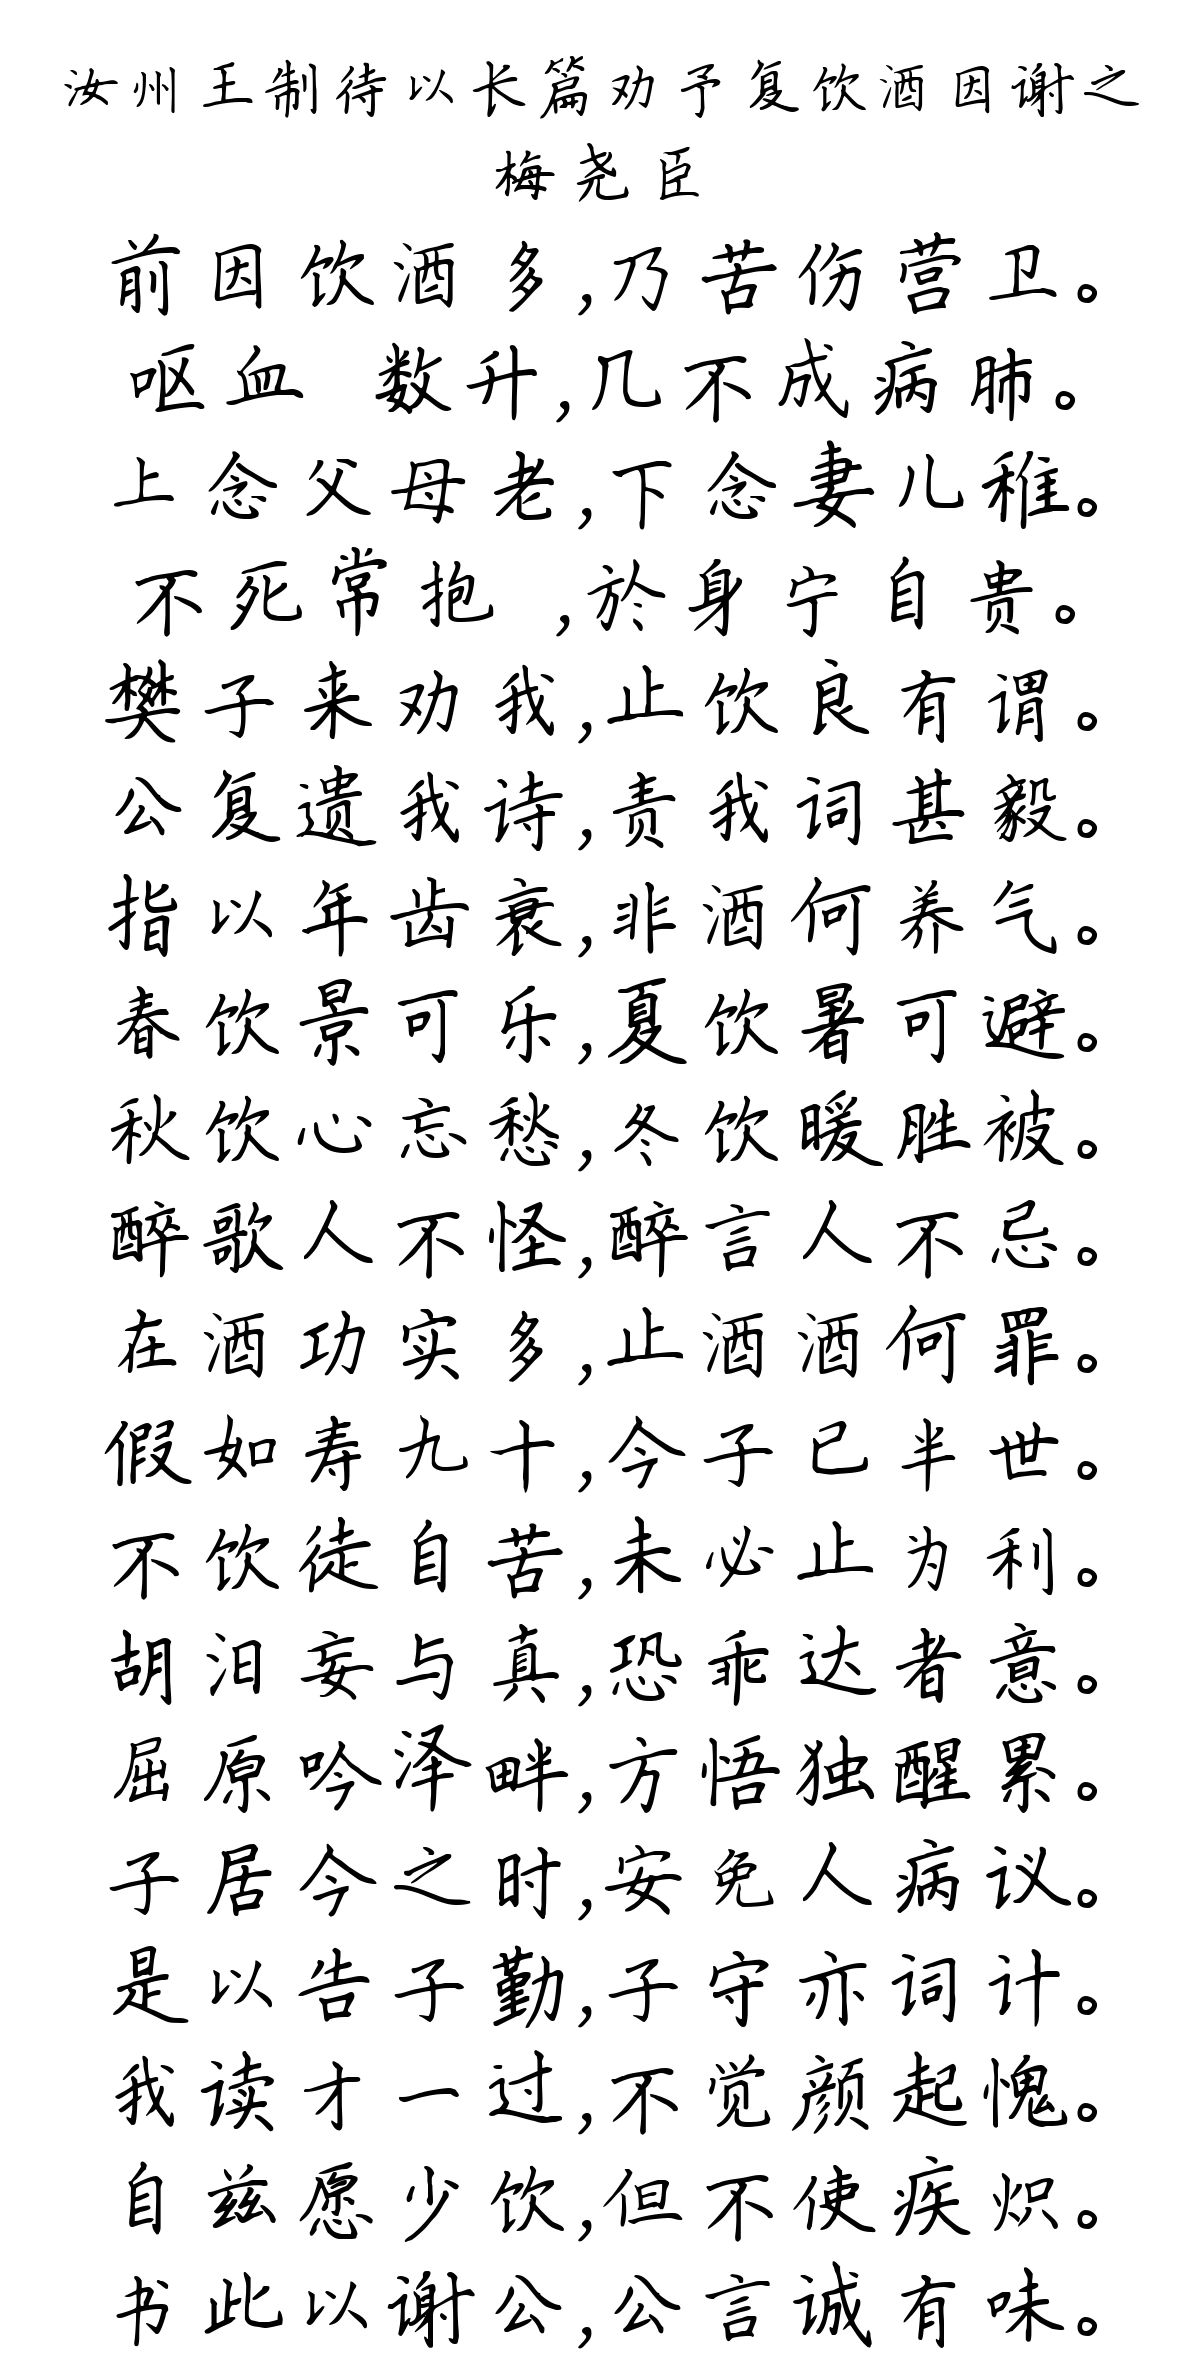 汝州王制待以长篇劝予复饮酒因谢之
梅尧臣
前因饮酒多,乃苦伤营卫。
呕血 数升,几不成病肺。
上念父母老,下念妻儿稚。
不死常抱 ,於身宁自贵。
樊子来劝我,止饮良有谓。
公复遗我诗,责我词甚毅。
指以年齿衰,非酒何养气。
春饮景可乐,夏饮暑可避。
秋饮心忘愁,冬饮暖胜被。
醉歌人不怪,醉言人不忌。
在酒功实多,止酒酒何罪。
假如寿九十,今子已半世。
不饮徒自苦,未必止为利。
胡汩妄与真,恐乖达者意。
屈原吟泽畔,方悟独醒累。
子居今之时,安免人病议。
是以告子勤,子守亦词计。
我读才一过,不觉颜起愧。
自兹愿少饮,但不使疾炽。
书此以谢公,公言诚有味。